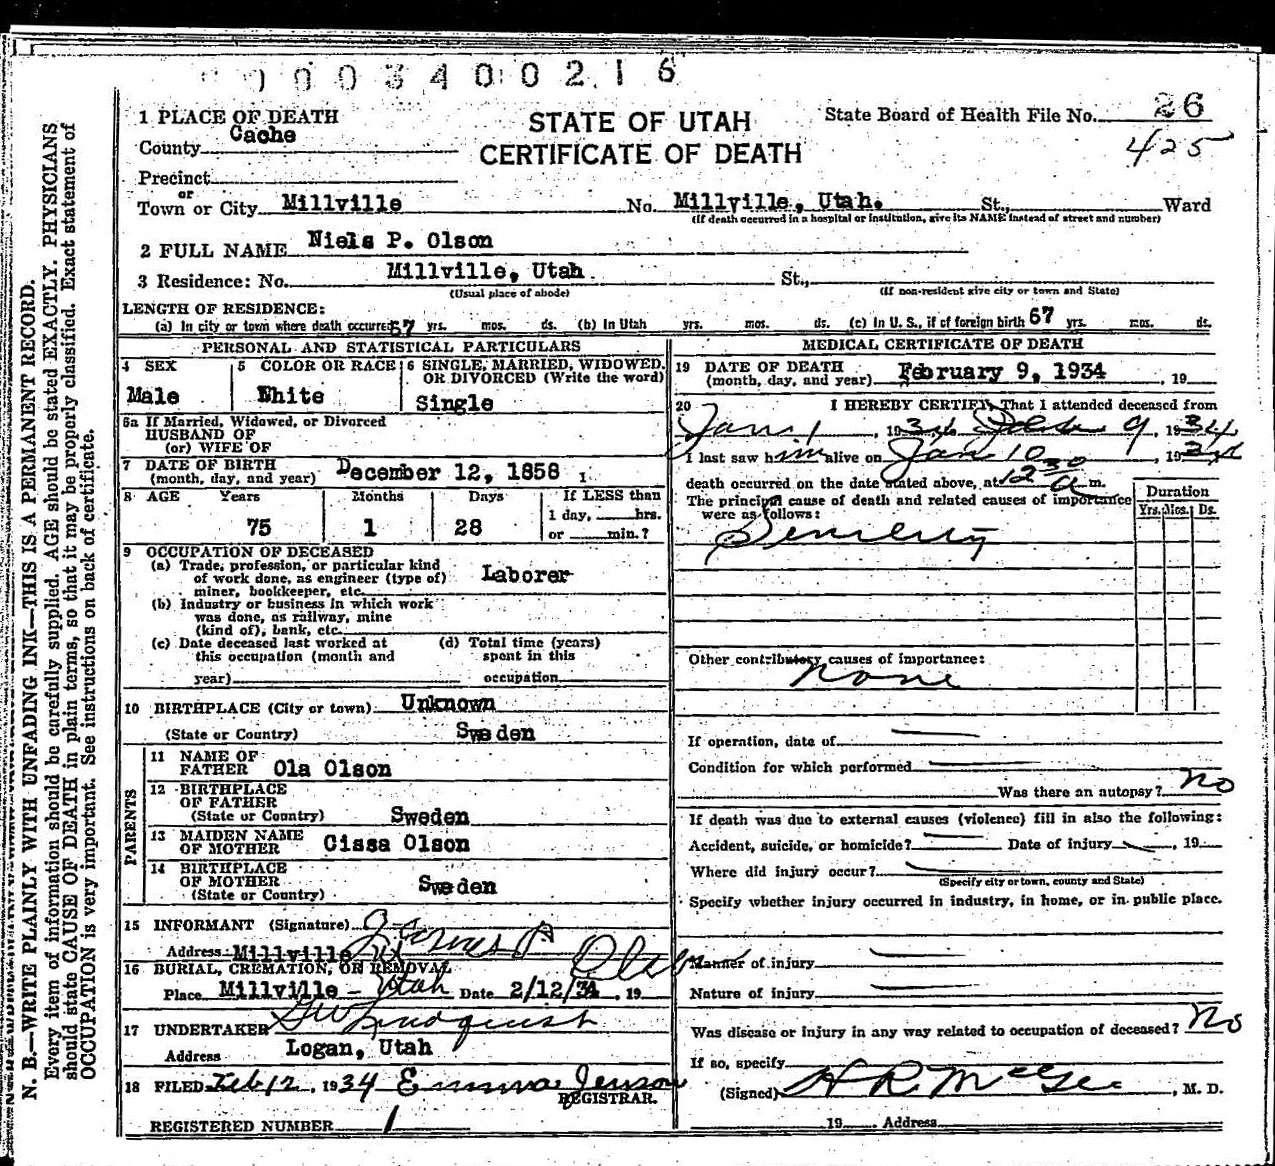 0003400216
1 PLACE OF DEATH
STATE OF UTAH
CERTIFICATE OF DEATH
State Board of Health File No. 26
425
County Cache
Precinct
or
Town or City Millville No. Millville, Utah. St., Ward
(If death occurred in a hospital or institution, give its NAME instead of street and number)
2 FULL NAME Niels P. Olson
3 Residence: No. Millville, Utah St.,
(Usual place of abode) (If non-resident give city or town and State)
LENGTH OF RESIDENCE:
(a) In city or town where death occurred 67 yrs. mos. ds. (b) In Utah yrs. mos. ds. (c) In U. S., if of foreign birth 67 yrs. mos. ds.
PERSONAL AND STATISTICAL PARTICULARS
4 SEX
Male
5 COLOR OR RACE
White
6 SINGLE, MARRIED, WIDOWED,
OR DIVORCED (Write the word)
Single
6a If Married, Widowed, or Divorced
HUSBAND OF
(or) WIFE OF
7 DATE OF BIRTH
(month, day, and year) December 12, 1858
8 AGE Years Months Days If LESS than
1 day, hrs.
75 1 28 or min.?
9 OCCUPATION OF DECEASED
(a) Trade, profession, or particular kind
of work done, as engineer (type of)
miner, bookkeeper, etc. Laborer
(b) Industry or business in which work
was done, as railway, mine
(kind of), bank, etc.
(c) Date deceased last worked at
this occupation (month and
year)
(d) Total time (years)
spent in this
occupation
10 BIRTHPLACE (City or town) Unknown
(State or Country) Sweden
PARENTS
11 NAME OF
FATHER Ola Olson
12 BIRTHPLACE
OF FATHER
(State or Country) Sweden
13 MAIDEN NAME
OF MOTHER Cissa Olson
14 BIRTHPLACE
OF MOTHER
(State or Country) Sweden
15 INFORMANT (Signature) James P Olson
Address Millville Ut
16 BURIAL, CREMATION, OR REMOVAL
Place Millville - Utah Date 2/12/34, 19
17 UNDERTAKER GW Lindquist
Address Logan, Utah
18 FILED Feb 12, 1934 Emma Jenson
REGISTRAR.
REGISTERED NUMBER 1
MEDICAL CERTIFICATE OF DEATH
19 DATE OF DEATH
(month, day, and year) February 9, 1934, 19
20 I HEREBY CERTIFY, That I attended deceased from
Jan 1, 1934, to Feb 9, 1934
I last saw him alive on Jan 10, 1934
death occurred on the date stated above, at 12 30 a m.
The principal cause of death and related causes of importance
were as follows:
Senility
Duration
Yrs. Mos. Ds.
Other contributory causes of importance:
none
If operation, date of
Condition for which performed
Was there an autopsy? no
If death was due to external causes (violence) fill in also the following:
Accident, suicide, or homicide? Date of injury, 19
Where did injury occur?
(Specify city or town, county and State)
Specify whether injury occurred in industry, in home, or in public place.
Manner of injury
Nature of injury
Was disease or injury in any way related to occupation of deceased? No
If so, specify
(Signed) H R McGee, M. D.
19 Address
N. B.—WRITE PLAINLY WITH UNFADING INK—THIS IS A PERMANENT RECORD.
Every item of information should be carefully supplied. AGE should be stated EXACTLY. PHYSICIANS
should state CAUSE OF DEATH in plain terms, so that it may be properly classified. Exact statement of
OCCUPATION is very important. See instructions on back of certificate.